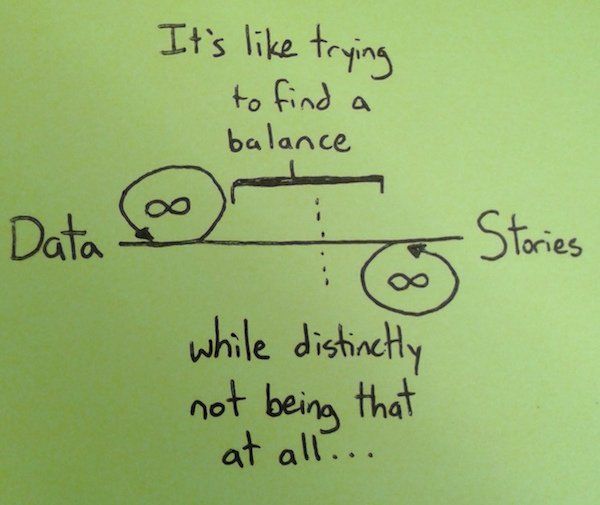 It's like trying
to find a
balance
∞
Data
Stories
∞
while distinctly
not being that
at all...